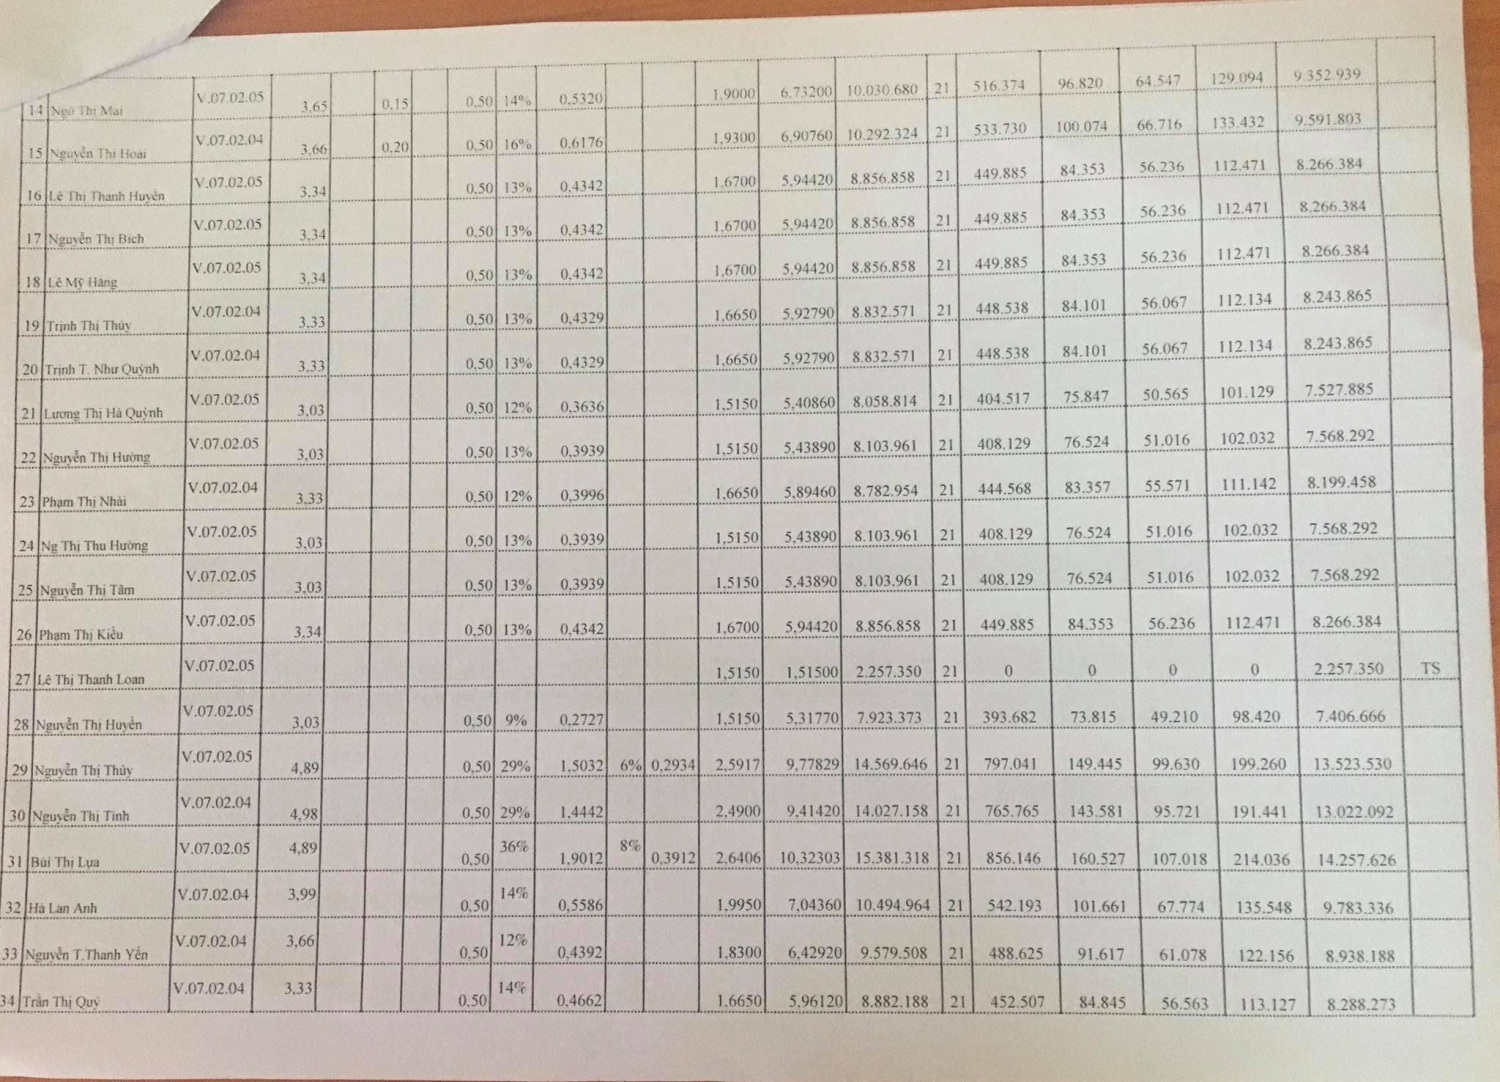 14 Ngô Thị Mai V.07.02.05 3,65 0,15 0,50 14% 0,5320 1,9000 6,73200 10.030.680 21 516.374 96.820 64.547 129.094 9.352.939
15 Nguyễn Thị Hoài V.07.02.04 3,66 0,20 0,50 16% 0,6176 1,9300 6,90760 10.292.324 21 533.730 100.074 66.716 133.432 9.591.803
16 Lê Thị Thanh Huyền V.07.02.05 3,34 0,50 13% 0,4342 1,6700 5,94420 8.856.858 21 449.885 84.353 56.236 112.471 8.266.384
17 Nguyễn Thị Bích V.07.02.05 3,34 0,50 13% 0,4342 1,6700 5,94420 8.856.858 21 449.885 84.353 56.236 112.471 8.266.384
18 Lê Mỹ Hằng V.07.02.05 3,34 0,50 13% 0,4342 1,6700 5,94420 8.856.858 21 449.885 84.353 56.236 112.471 8.266.384
19 Trịnh Thị Thúy V.07.02.04 3,33 0,50 13% 0,4329 1,6650 5,92790 8.832.571 21 448.538 84.101 56.067 112.134 8.243.865
20 Trịnh T. Như Quỳnh V.07.02.04 3,33 0,50 13% 0,4329 1,6650 5,92790 8.832.571 21 448.538 84.101 56.067 112.134 8.243.865
21 Lương Thị Hà Quỳnh V.07.02.05 3,03 0,50 12% 0,3636 1,5150 5,40860 8.058.814 21 404.517 75.847 50.565 101.129 7.527.885
22 Nguyễn Thị Hường V.07.02.05 3,03 0,50 13% 0,3939 1,5150 5,43890 8.103.961 21 408.129 76.524 51.016 102.032 7.568.292
23 Phạm Thị Nhài V.07.02.04 3,33 0,50 12% 0,3996 1,6650 5,89460 8.782.954 21 444.568 83.357 55.571 111.142 8.199.458
24 Ng Thị Thu Hường V.07.02.05 3,03 0,50 13% 0,3939 1,5150 5,43890 8.103.961 21 408.129 76.524 51.016 102.032 7.568.292
25 Nguyễn Thị Tâm V.07.02.05 3,03 0,50 13% 0,3939 1,5150 5,43890 8.103.961 21 408.129 76.524 51.016 102.032 7.568.292
26 Phạm Thị Kiều V.07.02.05 3,34 0,50 13% 0,4342 1,6700 5,94420 8.856.858 21 449.885 84.353 56.236 112.471 8.266.384
27 Lê Thị Thanh Loan V.07.02.05 1,5150 1,51500 2.257.350 21 0 0 0 0 2.257.350 TS
28 Nguyễn Thị Huyền V.07.02.05 3,03 0,50 9% 0,2727 1,5150 5,31770 7.923.373 21 393.682 73.815 49.210 98.420 7.406.666
29 Nguyễn Thị Thủy V.07.02.05 4,89 0,50 29% 1,5032 6% 0,2934 2,5917 9,77829 14.569.646 21 797.041 149.445 99.630 199.260 13.523.530
30 Nguyễn Thị Tình V.07.02.04 4,98 0,50 29% 1,4442 2,4900 9,41420 14.027.158 21 765.765 143.581 95.721 191.441 13.022.092
31 Bùi Thị Lụa V.07.02.05 4,89 0,50 36% 1,9012 8% 0,3912 2,6406 10,32303 15.381.318 21 856.146 160.527 107.018 214.036 14.257.626
32 Hà Lan Anh V.07.02.04 3,99 0,50 14% 0,5586 1,9950 7,04360 10.494.964 21 542.193 101.661 67.774 135.548 9.783.336
33 Nguyễn T.Thanh Yến V.07.02.04 3,66 0,50 12% 0,4392 1,8300 6,42920 9.579.508 21 488.625 91.617 61.078 122.156 8.938.188
34 Trần Thị Quý V.07.02.04 3,33 0,50 14% 0,4662 1,6650 5,96120 8.882.188 21 452.507 84.845 56.563 113.127 8.288.273